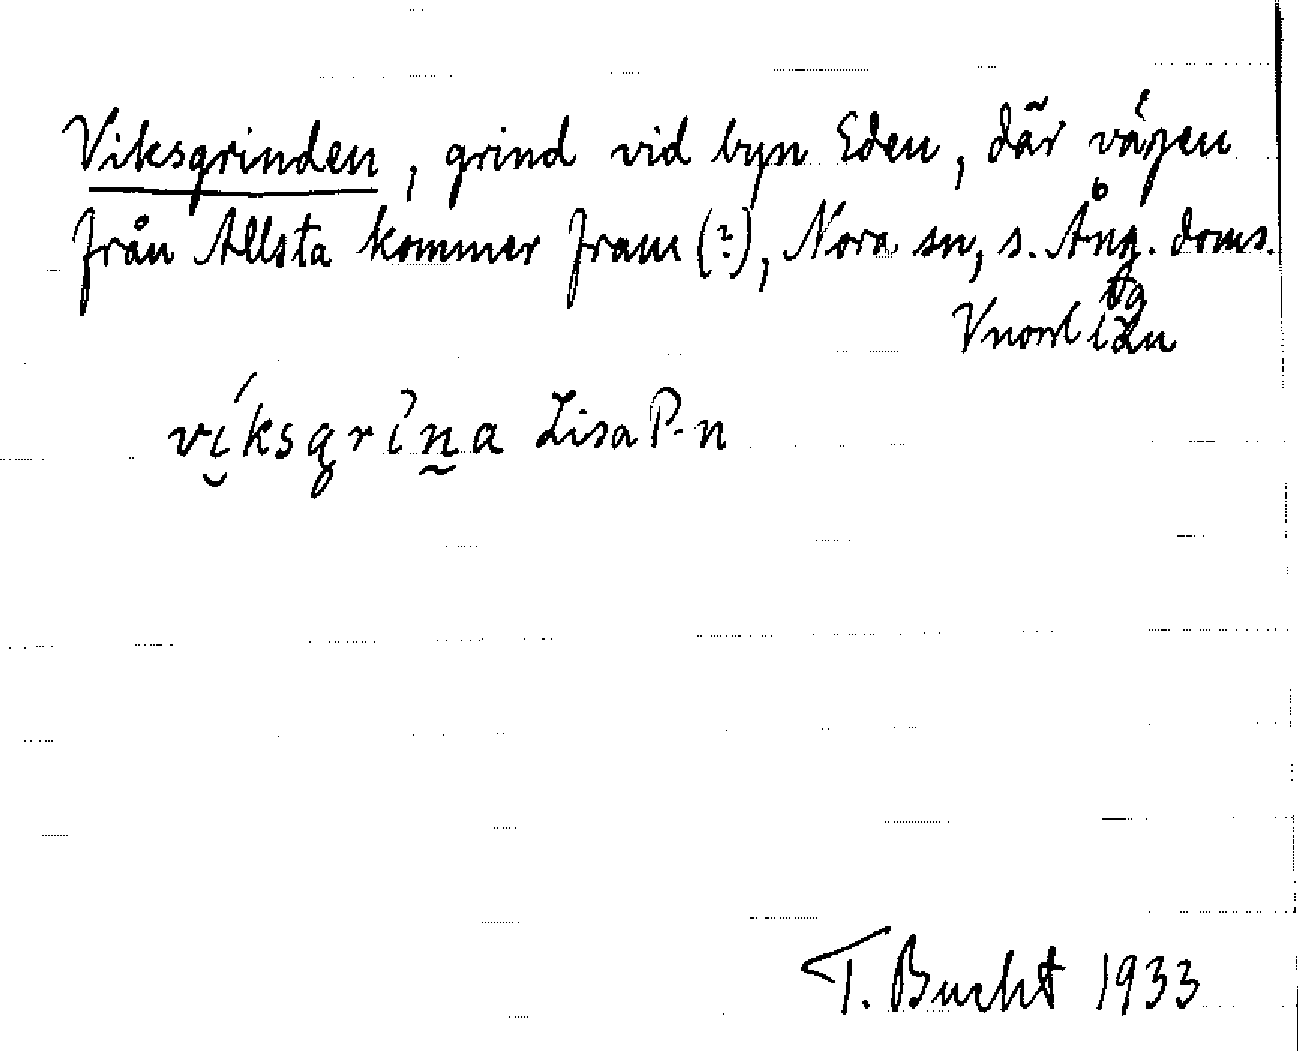 Viksgrinden, grind vid byn Eden, där vägen
från Allsta kommer fram (?), Nora sn, s. Ång. doms.
víksgrìn̰a Lisa P-n
T. Bucht 1933